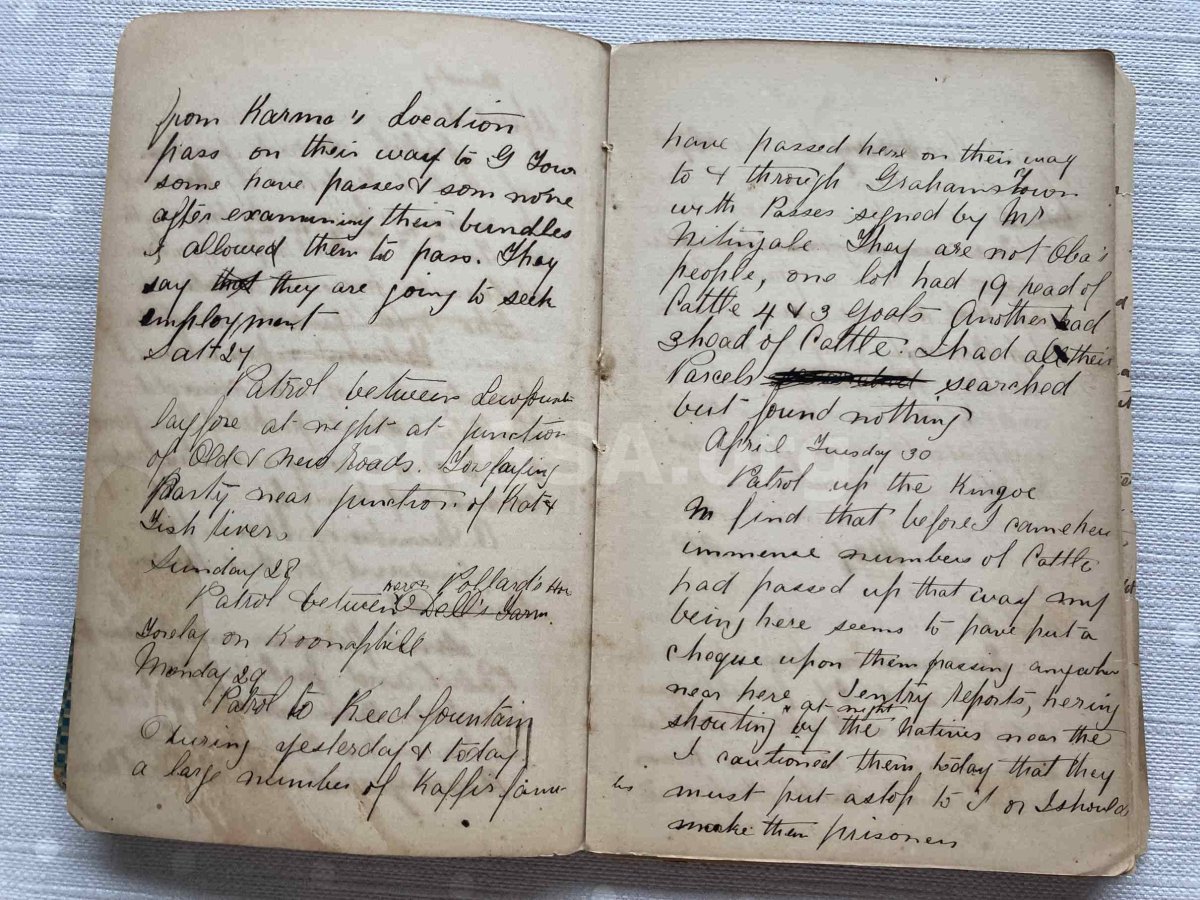 from Karma's Location
pass on their way to G Town
some have passes & som none
after examining their bundles
I allowed them to pass. They
say they are going to seek
employment
Satt 27
Patrol between
lay fore at night at junction
of Old & New Roads. Forelaying
Party near junction of Kat &
Fish rivers
Sunday 28
near Pollard's Hoe
Patrol between Dell's Farm.
Forelay on Koonaphill
Monday 29
Patrol to Reed fountain
During yesterday & today
a large number of Kaffir fami-
lies
have passed here on their way
to & through Grahamstown
with Passes signed by Mr
Nitingale. They are not Oba's
people, one lot had 19 head of
Cattle 4 & 3 Goats Another had
3 head of Cattle. I had all their
Parcels searched
but found nothing
April Tuesday 30
Patrol up the Kingoe
find that before I came here
immense numbers of Cattle
had passed up that way my
being here seems to have put a
cheque upon them passing anywhere
near here. Sentry reports, hering
"at night
shouting by the Natives near the
I cautioned them today that they
must put a stop to I or I should
make them prisoners
SA.org